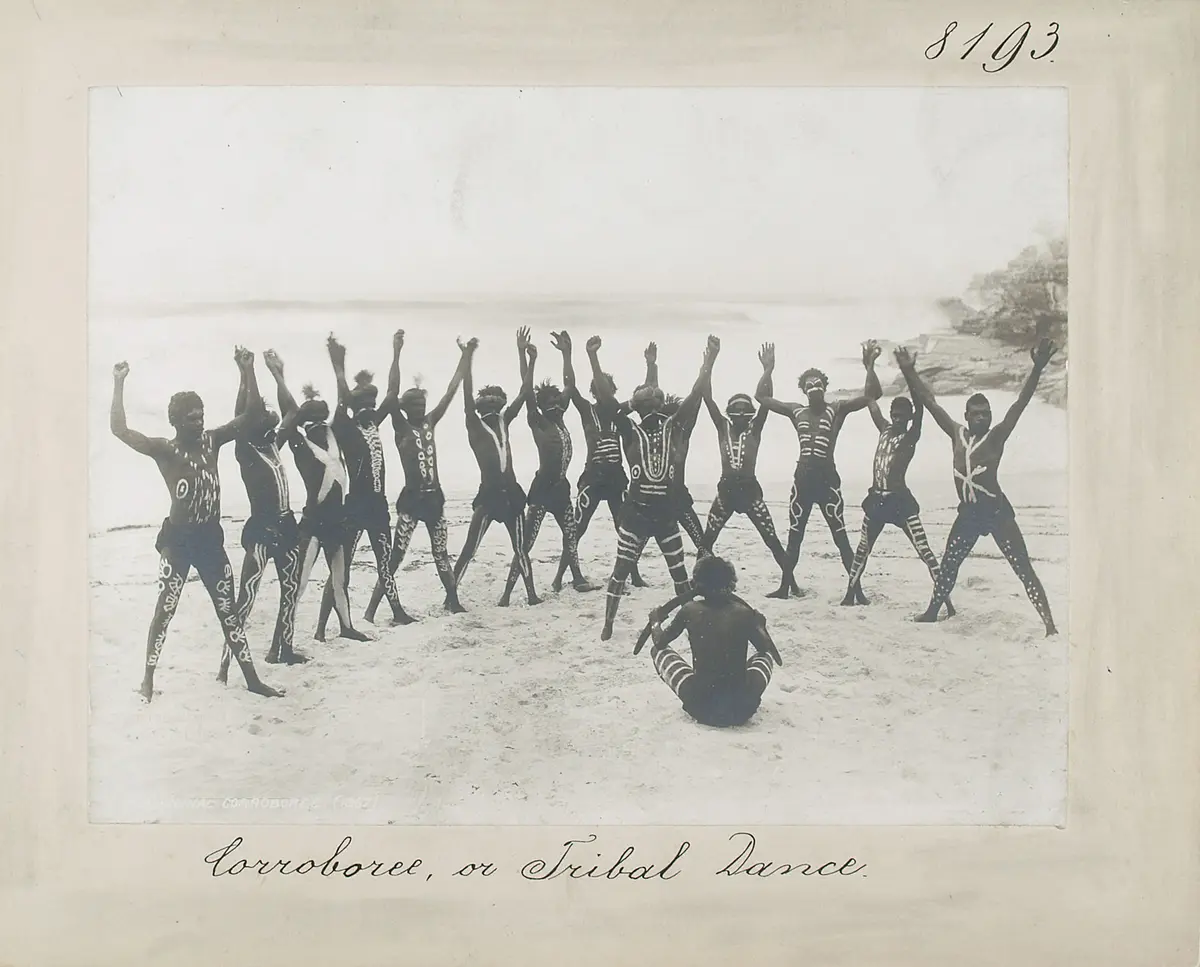 8193.
CORROBOREE
Corroboree, or Tribal Dance.